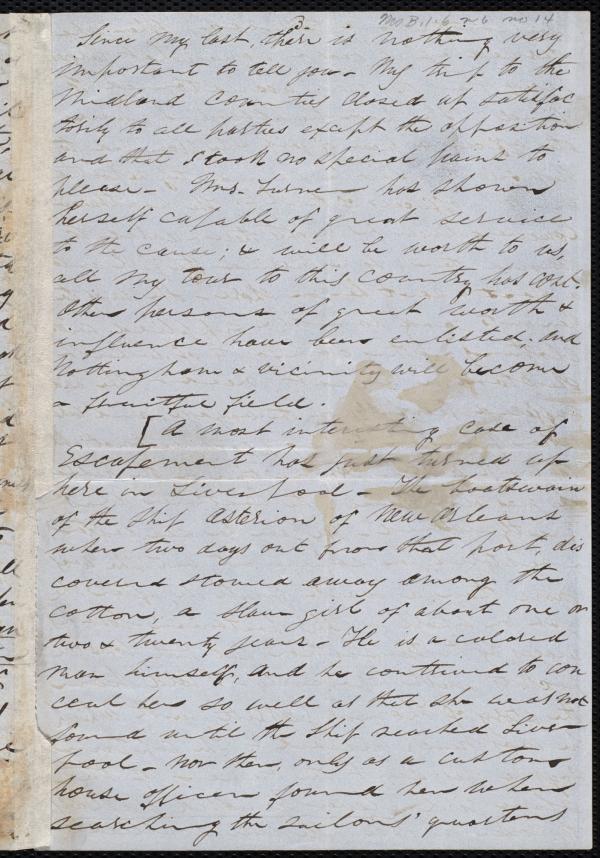 3
Ms. B. 1. 6 v. 6 no 14
Since my last, there is nothing very
important to tell you - My trip to the
Midland Counties closed up satisfac
torily to all parties except the opposition
and that I took no special pains to
please - Mrs. Turner has shown
herself capable of great service
to the cause; & will be worth to us,
all my tour to this country has cost.
Other persons of great worth &
influence have been enlisted; and
Nottingham & vicinity will become
a fruitful field.
[A most interesting case of
Escapement has just turned up
here in Liverpool - The boatswain
of the Ship Asterion of New Orleans
when two days out from that port, dis
covered stowed away among the
cotton, a slave girl of about one or
two & twenty years - He is a colored
man himself, and he contrived to con
ceal her so well as that she was not
found until the Ship reached Liver
pool - nor then, only as a custom
house officer found her when
searching the sailors' quarters